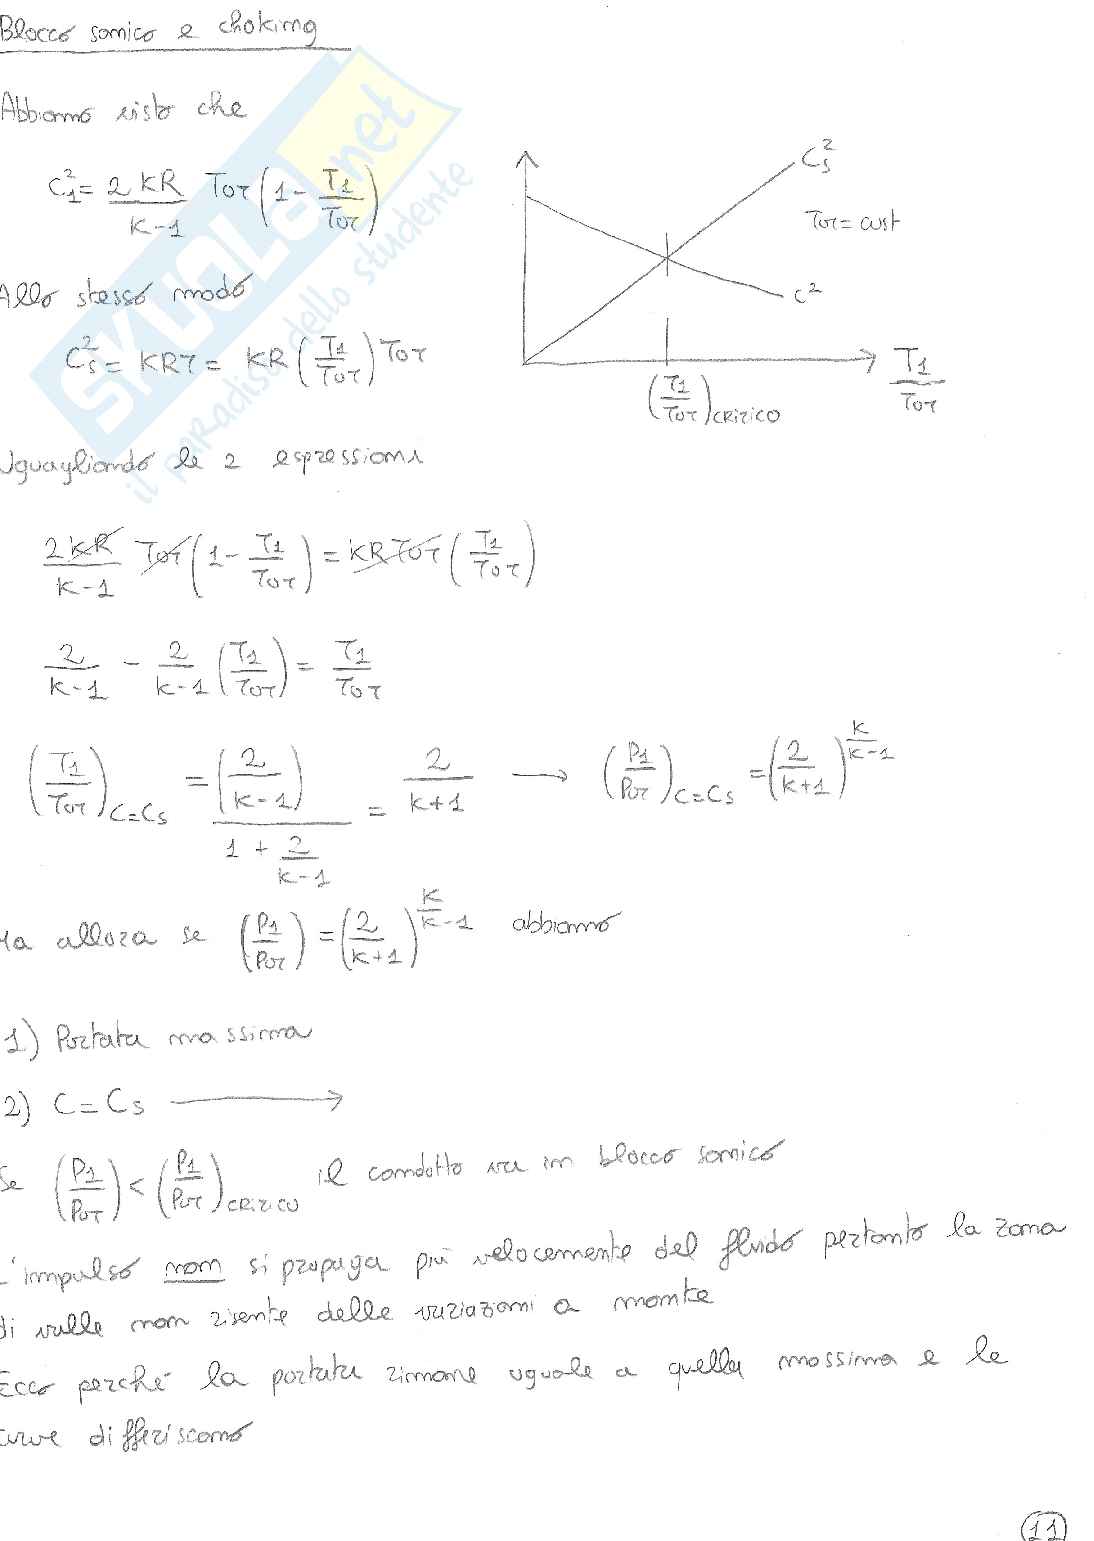 Blocco sonico e choking
Abbiamo visto che
C₁² = 2KR/(K-1) TOT (1 - T1/TOT)
CS²
TOT = cost
C²
T1/TOT
(T1/TOT)CRITICO
Allo stesso modo
CS² = KRT = KR (T1/TOT) TOT
Uguagliando le 2 espressioni
2KR/(K-1) TOT (1 - T1/TOT) = KR TOT (T1/TOT)
2/(K-1) - 2/(K-1) (T1/TOT) = T1/TOT
(T1/TOT)C=CS = (2/(K-1)) / (1 + 2/(K-1)) = 2/(K+1) → (P1/POT)C=CS = (2/(K+1))^(K/(K-1))
Ma allora se (P1/POT) = (2/(K+1))^(K/(K-1)) abbiamo
1) Portata massima
2) C = CS →
Se (P1/POT) < (P1/POT)CRITICO il condotto va in blocco sonico
L'impulso non si propaga più velocemente del fluido pertanto la zona
di valle non risente delle variazioni a monte
Ecco perché la portata rimane uguale a quella massima e le
curve differiscono
11
SKUOLA.net
il paradiso dello studente